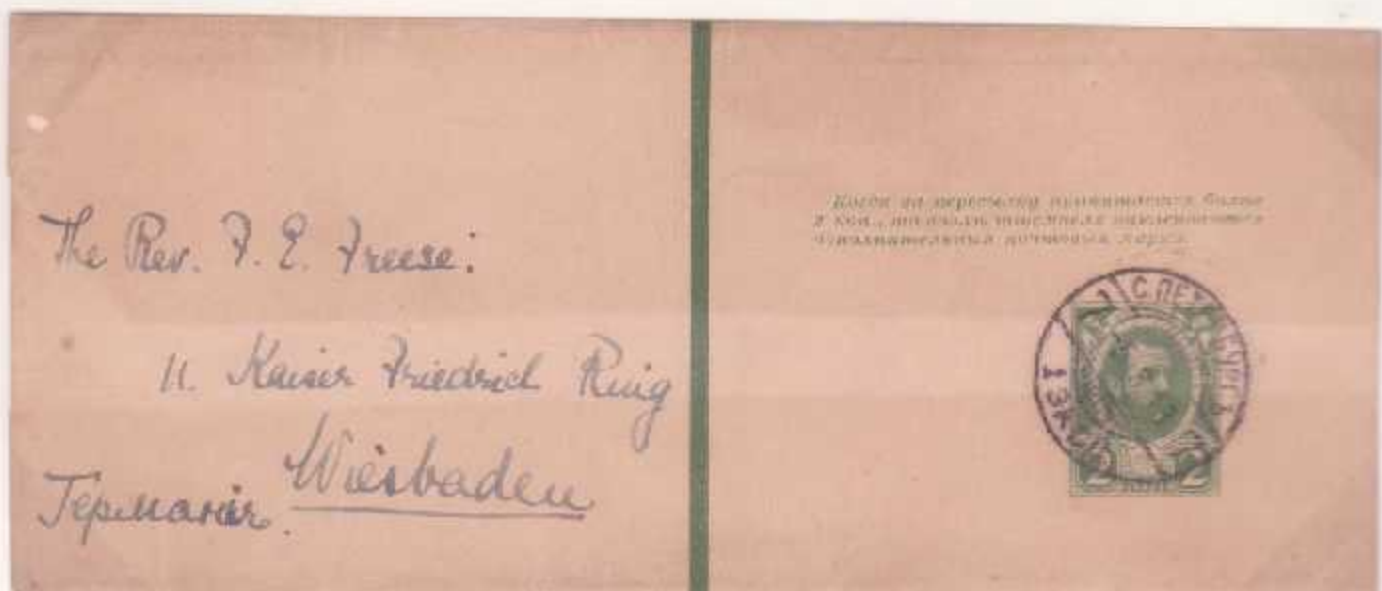 The Rev. F. E. Freese:
11. Kaiser Friedrich Ring
Wiesbaden
Германія.
Когда за пересылку причитается болѣе
2 коп.,
дополнительныхъ почтовыхъ марокъ.
С.ПЕТЕРБУРГЪ
1 ЭКСП
2 2